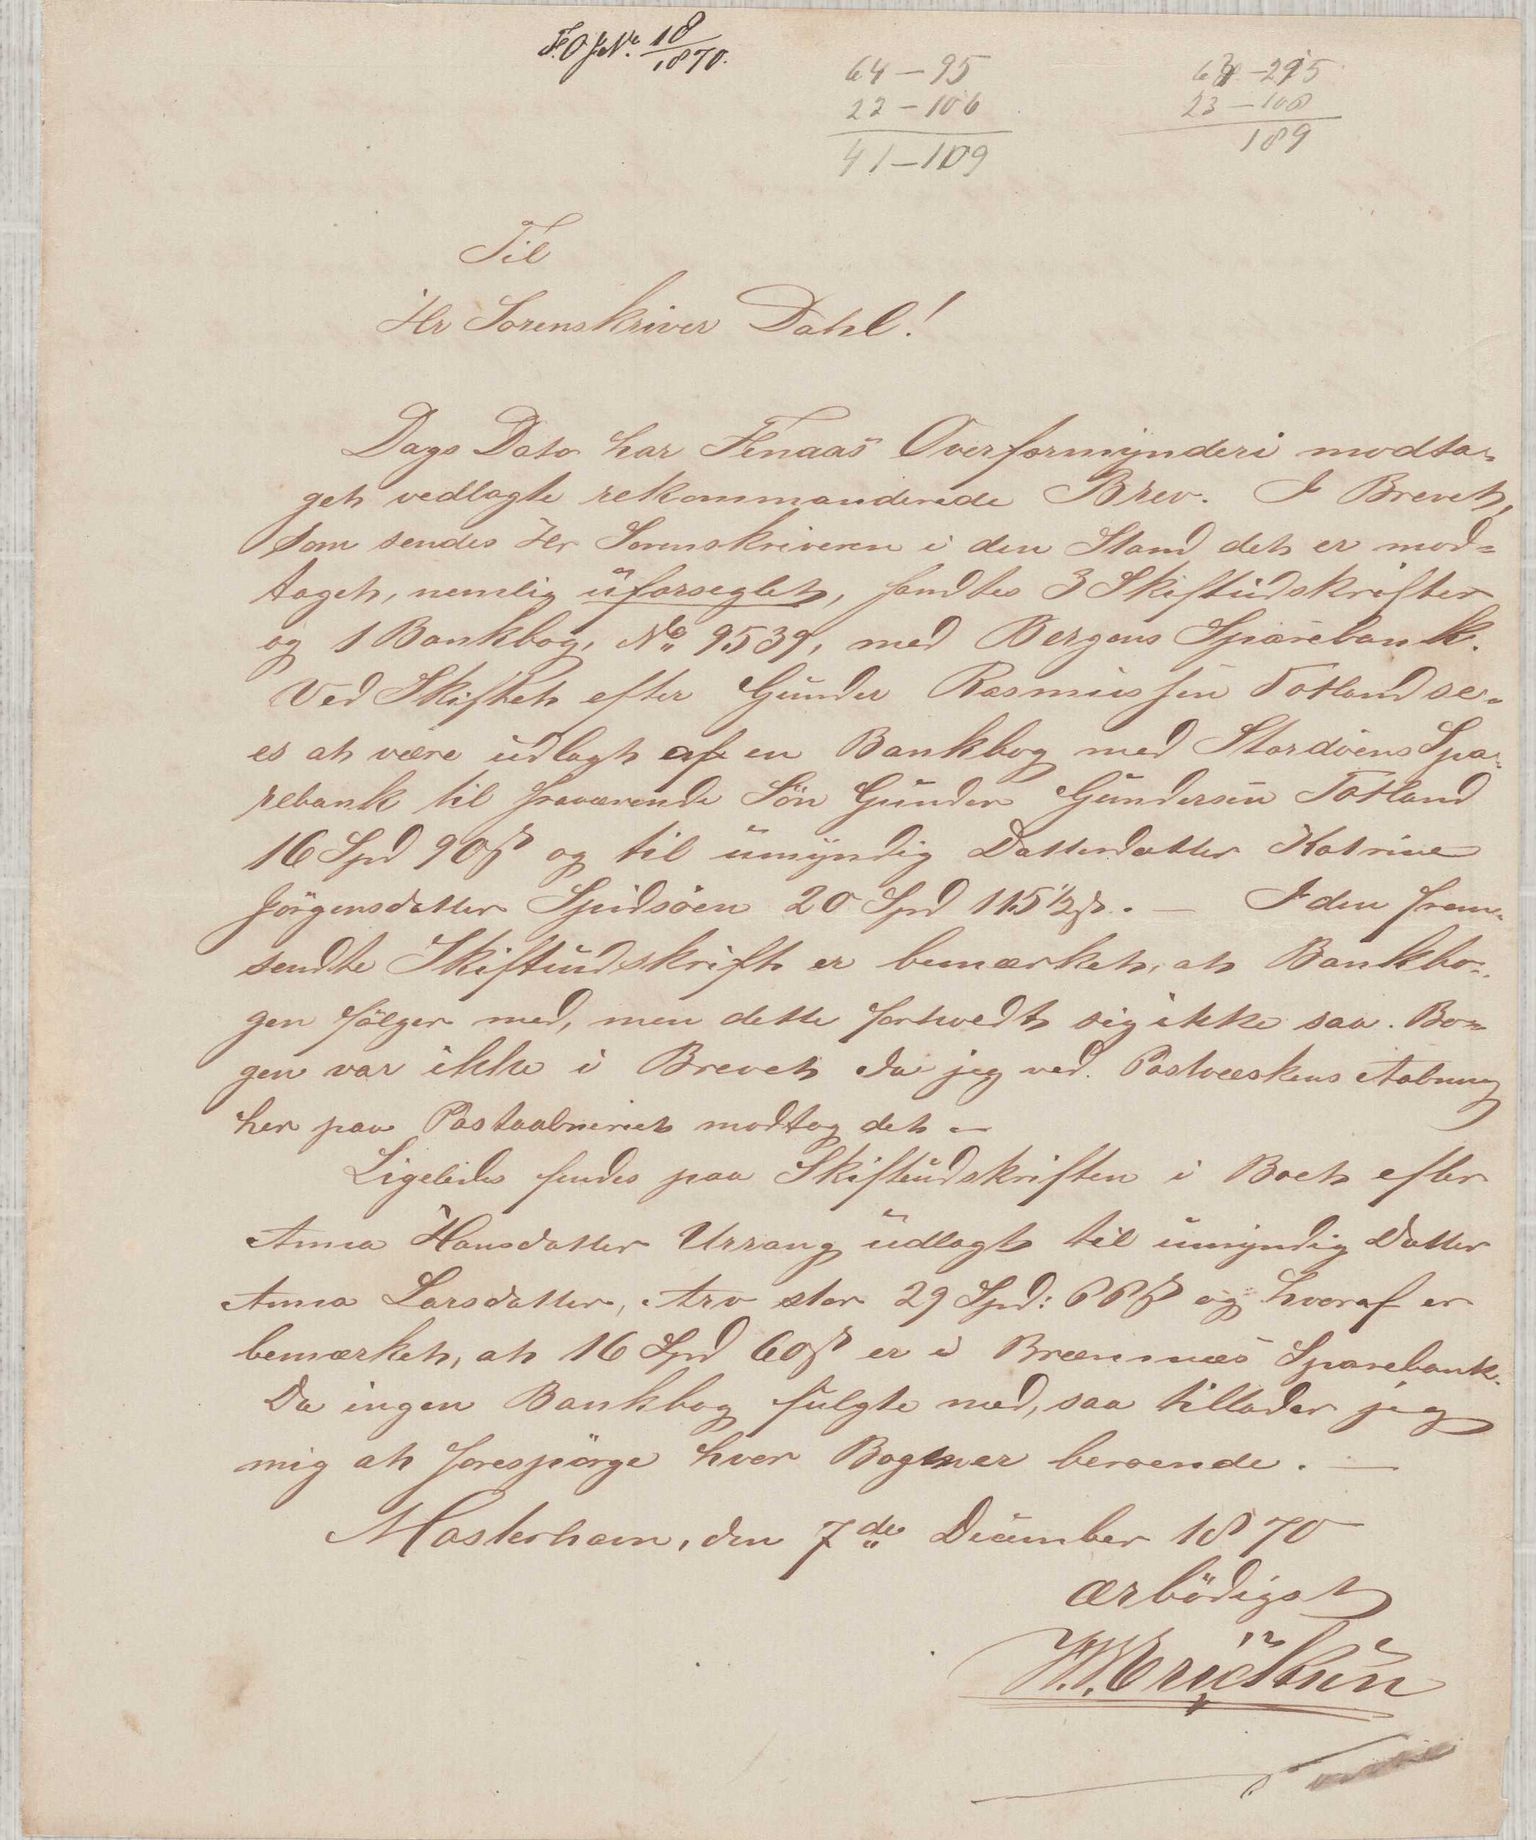 F.O.J.No. 18/1870.
64 – 95
22 – 106
41 – 109
64 – 215
23 – 108
189
Til
Hr Sorenskriver Dahl!
Dags Dato har Finaas Overformynderi modta-
get vedlagte rekommanderede Brev. I Brevet,
som sendes Hr Sorenskriveren i den Stand det er mod-
taget, nemlig uforseglet, fandtes 3 Skifteudskrifter
og 1 Bankbog, No 9539, med Bergens Sparebank.
Ved Skiftet efter Gunder Rasmussen Totland se-
es at være udlagt af en Bankbog med Stordøens Spa-
rebank til fraværende Søn Gunder Gundersen Totland
16 Spd 90 ß og til umyndig Datterdatter Katrine
Jörgensdatter Spidsöen 20 Spd 115 1/2 ß. — I den frem-
sendte Skifteudskrift er bemærket, at Bankbo-
gen følger med, men dette forholdt sig ikke saa. Bo-
gen var ikke i Brevet da jeg ved Postvæskens Aabning
her paa Postaabneriet modtog det —
Ligeledes findes paa Skifteudskriften i Boet efter
Anna Hansdatter Urrang udlagt til umyndig Datter
Anna Larsdatter, Arv stor 29 Spd: 66 ß og hvoraf er
bemærket, at 16 Spd 60 ß er i Bremnæs Sparebank.
Da ingen Bankbog fulgte med, saa tillader jeg
mig at forespørge hvor Bogen er beroende. —
Mosterhavn, den 7de December 1870
ærbödigst